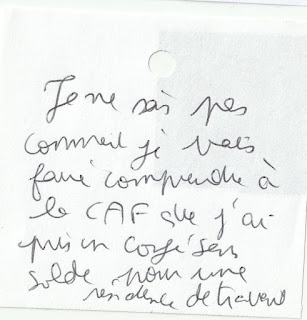 Je ne sais pas
comment je vais
faire comprendre à
la CAF que j'ai
pris un congé sans
solde pour une
résidence de travail